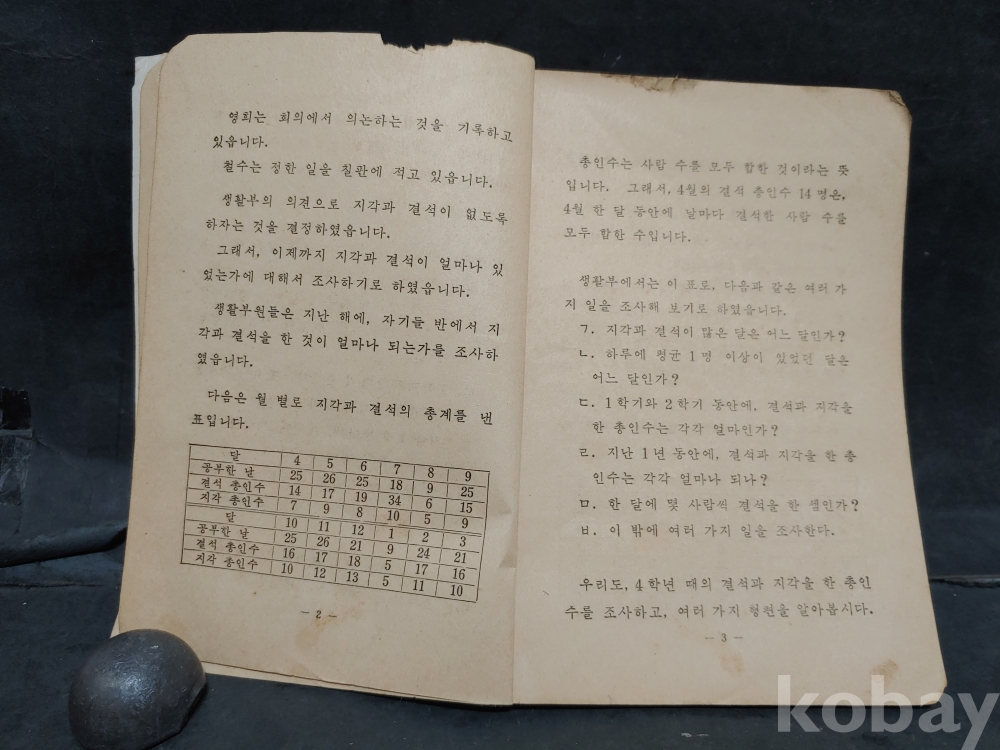 영희는 회의에서 의논하는 것을 기록하고
있읍니다.
철수는 정한 일을 칠판에 적고 있읍니다.
생활부의 의견으로 지각과 결석이 없도록
하자는 것을 결정하였읍니다.
그래서, 이제까지 지각과 결석이 얼마나 있
었는가에 대해서 조사하기로 하였읍니다.
생활부원들은 지난 해에, 자기들 반에서 지
각과 결석을 한 것이 얼마나 되는가를 조사하
였읍니다.
다음은 월 별로 지각과 결석의 총계를 낸
표입니다.
달 4 5 6 7 8 9
공부한 날 25 26 25 18 9 25
결석 총인수 14 17 19 34 6 15
지각 총인수 7 9 8 10 5 9
달 10 11 12 1 2 3
공부한 날 25 26 21 9 24 21
결석 총인수 16 17 18 5 17 16
지각 총인수 10 12 13 5 11 10
— 2 —
총인수는 사람 수를 모두 합한 것이라는 뜻
입니다. 그래서, 4월의 결석 총인수 14명은,
4월 한 달 동안에 날마다 결석한 사람 수를
모두 합한 수입니다.
생활부에서는 이 표로, 다음과 같은 여러 가
지 일을 조사해 보기로 하였읍니다.
ㄱ. 지각과 결석이 많은 달은 어느 달인가?
ㄴ. 하루에 평균 1명 이상이 있었던 달은
어느 달인가?
ㄷ. 1학기와 2학기 동안에, 결석과 지각을
한 총인수는 각각 얼마인가?
ㄹ. 지난 1년 동안에, 결석과 지각을 한 총
인수는 각각 얼마나 되나?
ㅁ. 한 달에 몇 사람씩 결석을 한 셈인가?
ㅂ. 이 밖에 여러 가지 일을 조사한다.
우리도, 4학년 때의 결석과 지각을 한 총인
수를 조사하고, 여러 가지 형편을 알아봅시다.
— 3 —
kobay